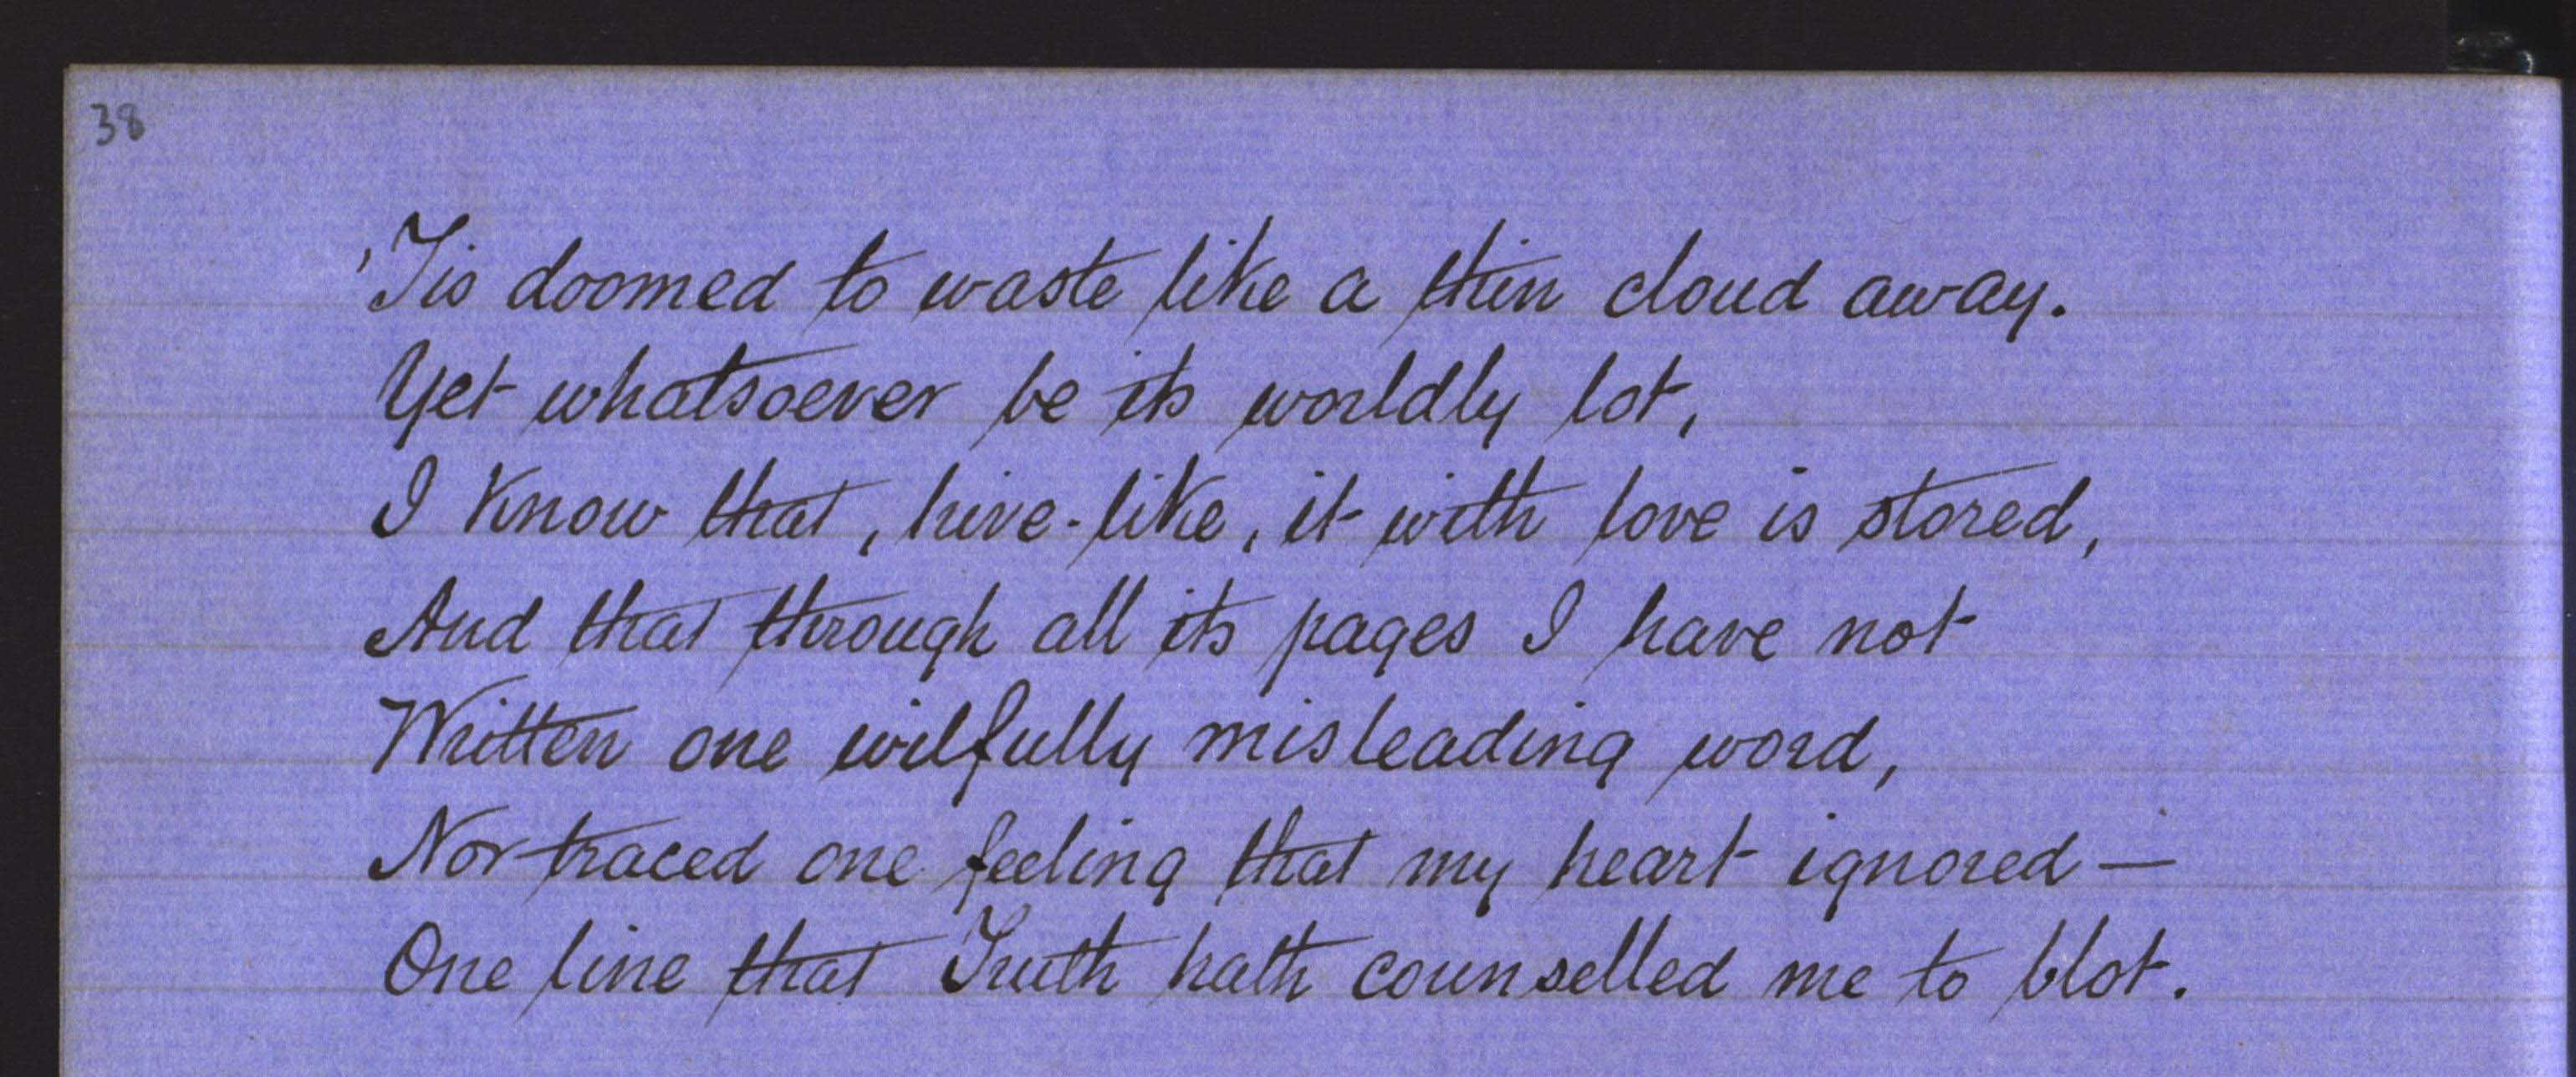 38
'Tis doomed to waste like a thin cloud away.
Yet whatsoever be its worldly lot,
I know that, hive-like, it with love is stored,
And that through all its pages I have not
Written one wilfully misleading word,
Nor traced one feeling that my heart ignored —
One line that Truth hath counselled me to blot.